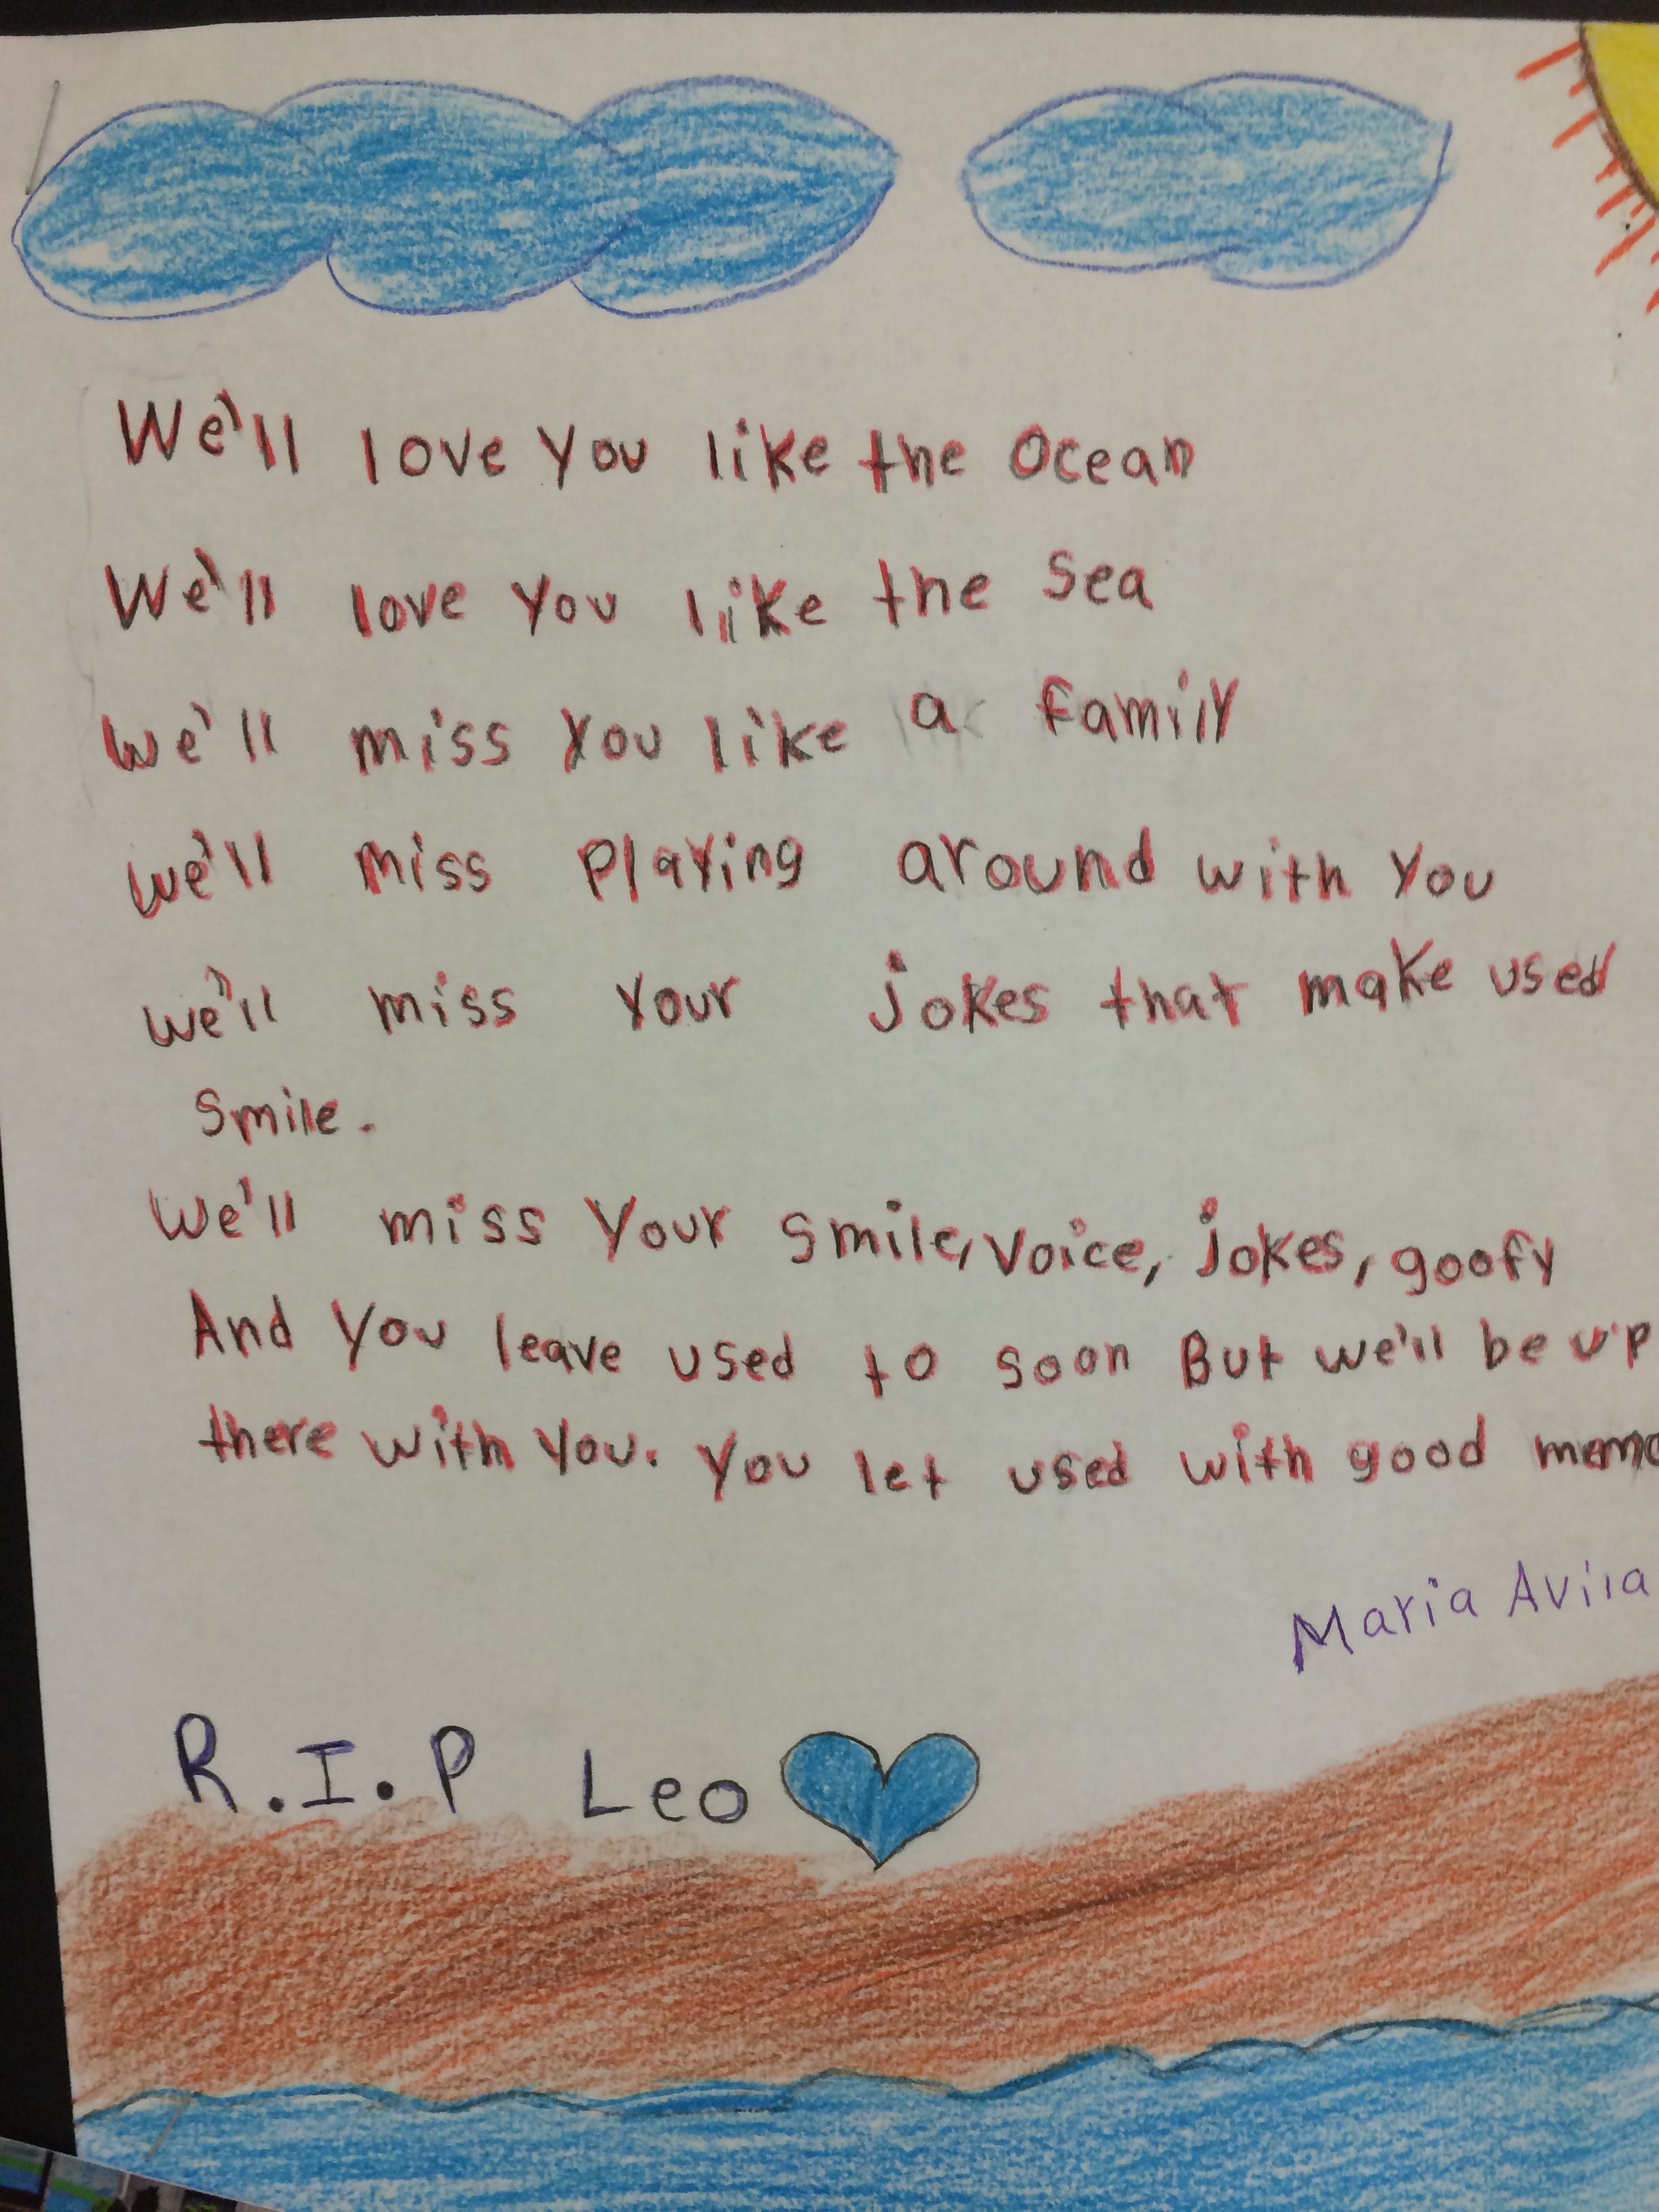 We'll love you like the Ocean
We'll love you like the Sea
we'll miss you like a family
we'll miss playing around with you
we'll miss your jokes that make used
smile.
we'll miss your smile, voice, jokes, goofy
And you leave used to soon But we'll be up
there with you. you let used with good memo
Maria Avila
R.I.P Leo